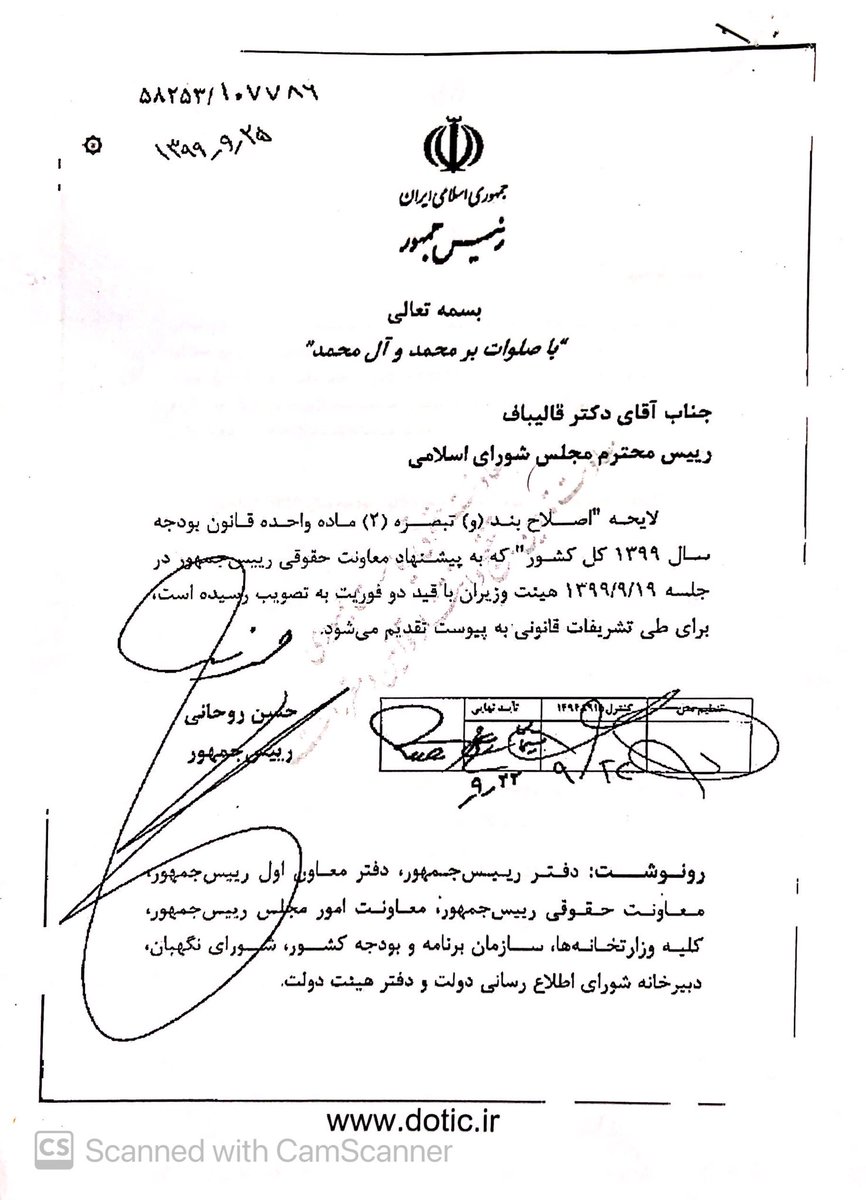 ۵۸۲۵۳/۱۰۷۷۸۶
۱۳۹۹_۹_۲۵
جمهوری اسلامی ایران
رئیس جمهور
بسمه تعالی
"با صلوات بر محمد و آل محمد"
جناب آقای دکتر قالیباف
رییس محترم مجلس شورای اسلامی
لایحه "اصلاح بند (و) تبصره (۲) ماده واحده قانون بودجه
سال ۱۳۹۹ کل کشور" که به پیشنهاد معاونت حقوقی رییس‌جمهور در
جلسه ۱۳۹۹/۹/۱۹ هیئت وزیران با قید دو فوریت به تصویب رسیده است،
برای طی تشریفات قانونی به پیوست تقدیم می‌شود.
حسن روحانی
رییس‌جمهور
تنظیم متن
کنترل
تأیید نهایی
۹/۲۳
۹٫۲۳
رونوشت: دفتر رییس‌جمهور، دفتر معاون اول رییس‌جمهور،
معاونت حقوقی رییس‌جمهور، معاونت امور مجلس رییس‌جمهور،
کلیه وزارتخانه‌ها، سازمان برنامه و بودجه کشور، شورای نگهبان،
دبیرخانه شورای اطلاع رسانی دولت و دفتر هیئت دولت.
www.dotic.ir
CS Scanned with CamScanner